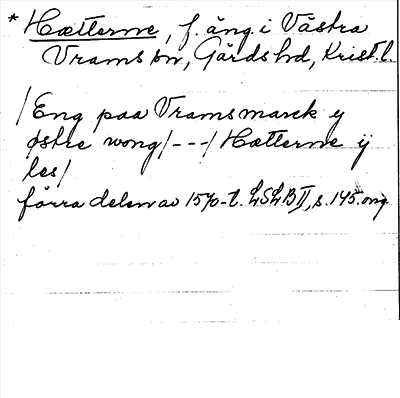 * Hætterne, f. äng i Västra
Vrams sn, Gärds hd, Krist. l.
/Eng paa Vramsmarck y
østre wong/---/Hætterne ij
les/
förra delen av 1570-t. LSLB II, s. 145. ong